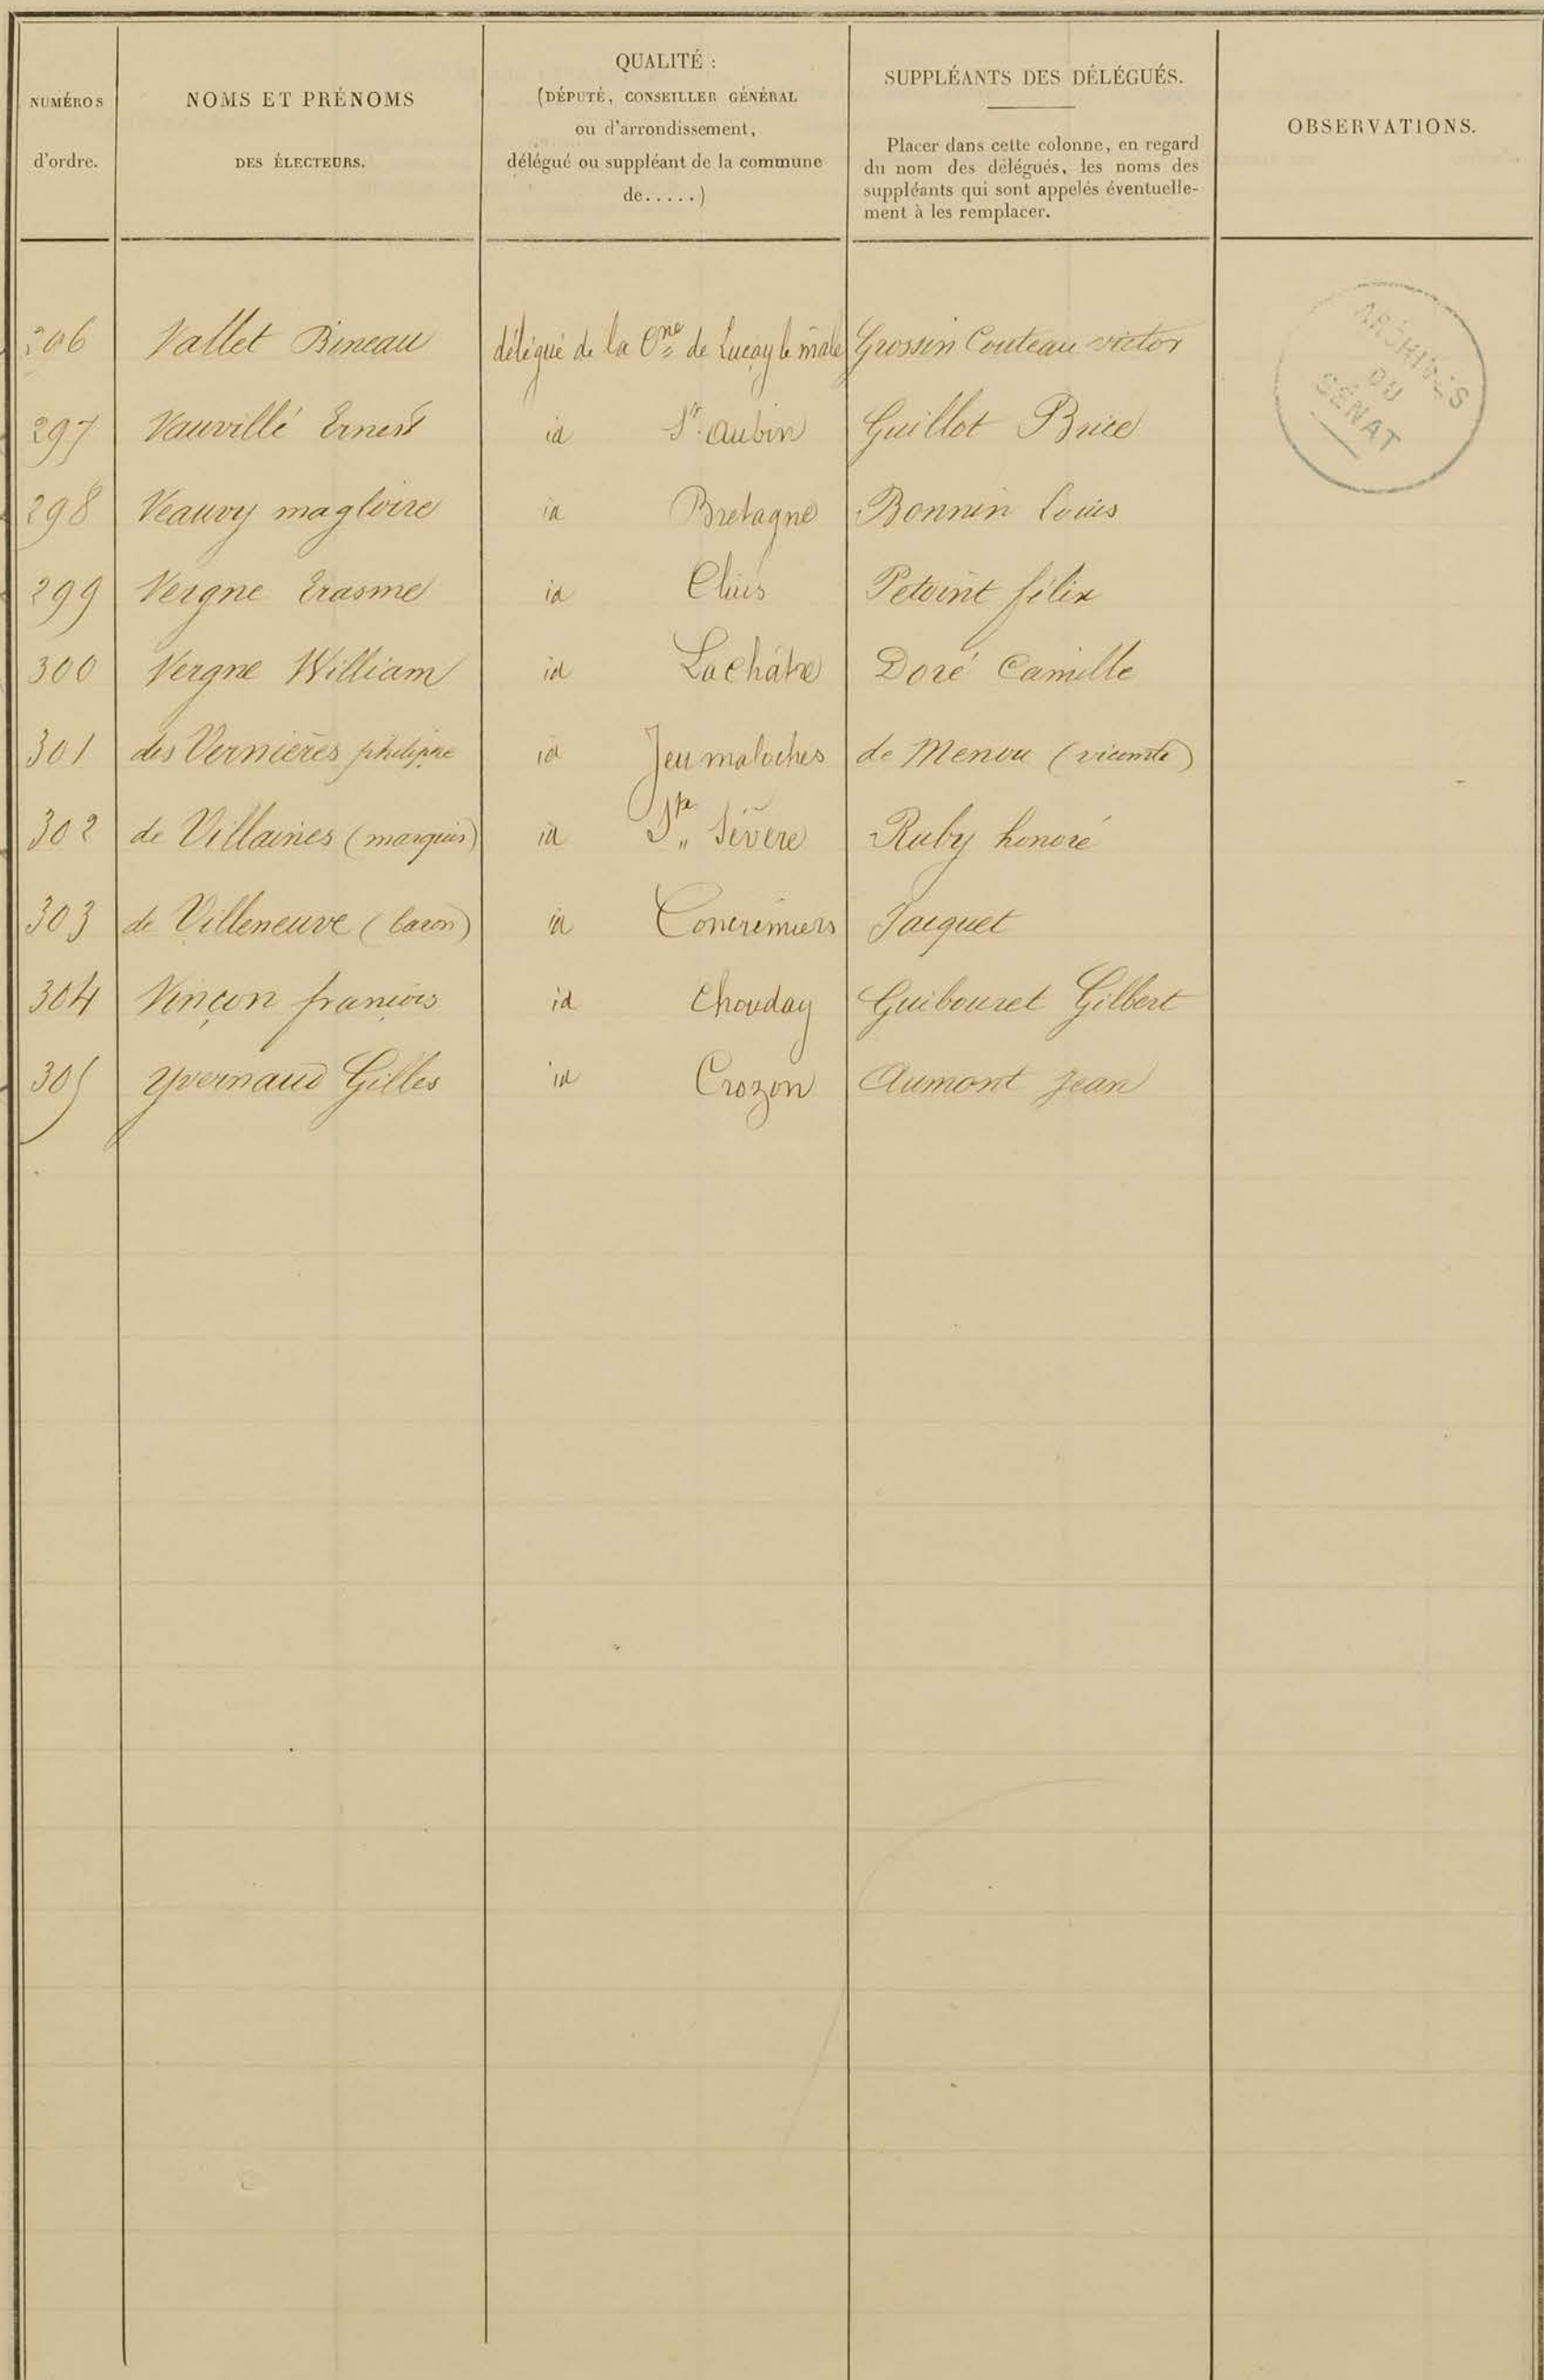 NUMÉROS
d'ordre.
NOMS ET PRÉNOMS
DES ÉLECTEURS.
QUALITÉ :
(DÉPUTÉ, CONSEILLER GÉNÉRAL
ou d'arrondissement,
délégué ou suppléant de la commune
de.....)
SUPPLÉANTS DES DÉLÉGUÉS.
Placer dans cette colonne, en regard
du nom des délégués, les noms des
suppléants qui sont appelés éventuelle-
ment à les remplacer.
OBSERVATIONS.
ARCHIVES
DU
SÉNAT
296 Vallet Bineau délégué de la Cne de Luçay le mâle Grossin Couteau victor
297 Vauvillé Ernest id St Aubin Guillot Brice
298 Veauvy magloire id Bretagne Bonnin Louis
299 Vergne Erasme id Cluis Petoint félix
300 Vergne William id Lachâtre Doré Camille
301 des Vernières philippe id Jeu maloches de Menou (vicomte)
302 de Villaines (marquis) id Ste Sévère Ruby honoré
303 de Villeneuve (baron) id Concrémiers Jacquet
304 Vinçon françois id Chouday Guibouret Gilbert
305 Yvernaud Gilles id Crozon Aumont Jean